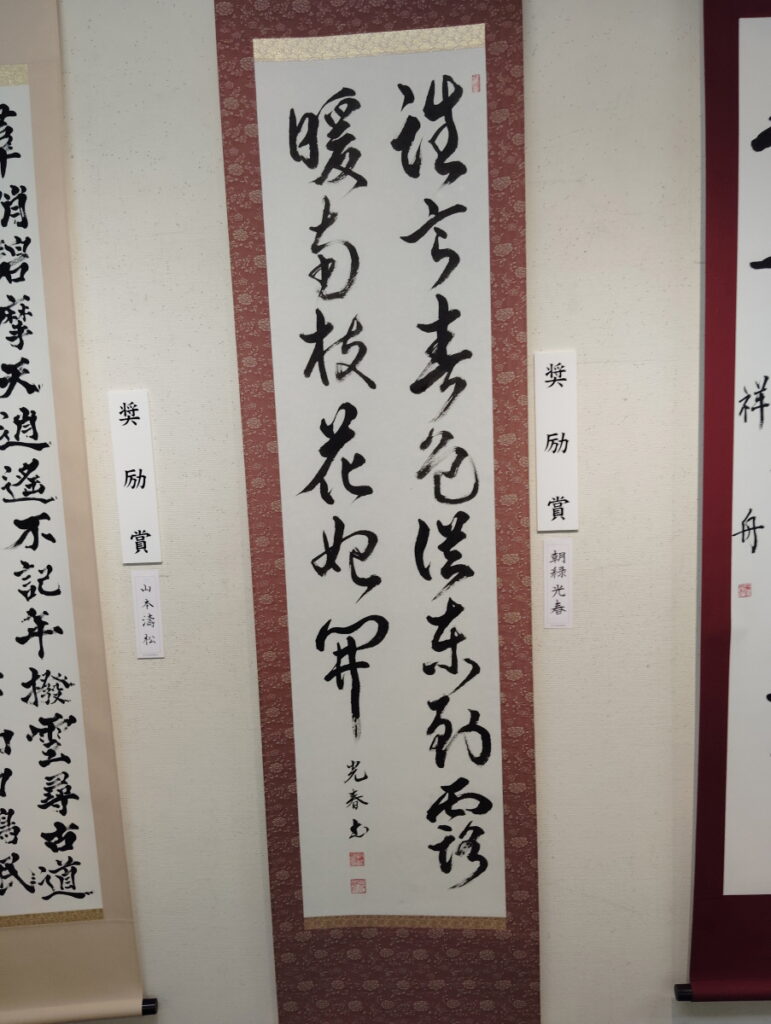 祥舟
奨励賞
朝緑光春
誰言春色従東到露
暖南枝花始開
光春書
奨励賞
山本濤松
羣峭碧摩天逍遙不記年撥雲尋古道